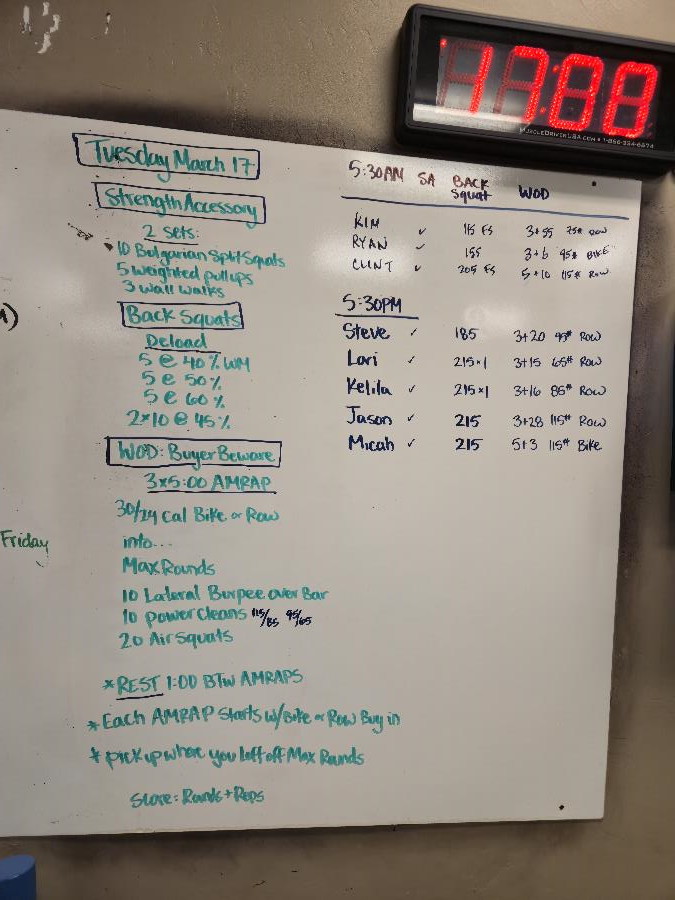 17:88
MUSCLEDRIVERUSA.COM • 1-888-234-6674
Tuesday March 17
Strength Accessory
2 sets:
10 Bulgarian Split Squats
5 weighted pullups
3 wall walks
Back Squats
Deload
5 @ 40% WM
5 @ 50%
5 @ 60%
2×10 @ 45%
WOD: Buyer Beware
3x5:00 AMRAP
30/24 Cal Bike or Row
into...
Max Rounds
10 Lateral Burpee over Bar
10 power cleans 115/85 95/65
20 Air Squats
*REST 1:00 BTW AMRAPS
*Each AMRAP Starts w/Bike or Row Buy in
*pick up where you left off Max Rounds
Score: Rounds + Reps
Friday
5:30AM SA BACK Squat WOD
KIM ✓ 115 FS 3+55 75# Row
RYAN ✓ 155 3+6 95# BIKE
CLINT ✓ 205 FS 5+10 115# Row
5:30PM
Steve ✓ 185 3+20 95# Row
Lori ✓ 215×1 3+15 65# Row
Kelila ✓ 215×1 3+16 85# Row
Jason ✓ 215 3+28 115# Row
Micah ✓ 215 5+3 115# Bike